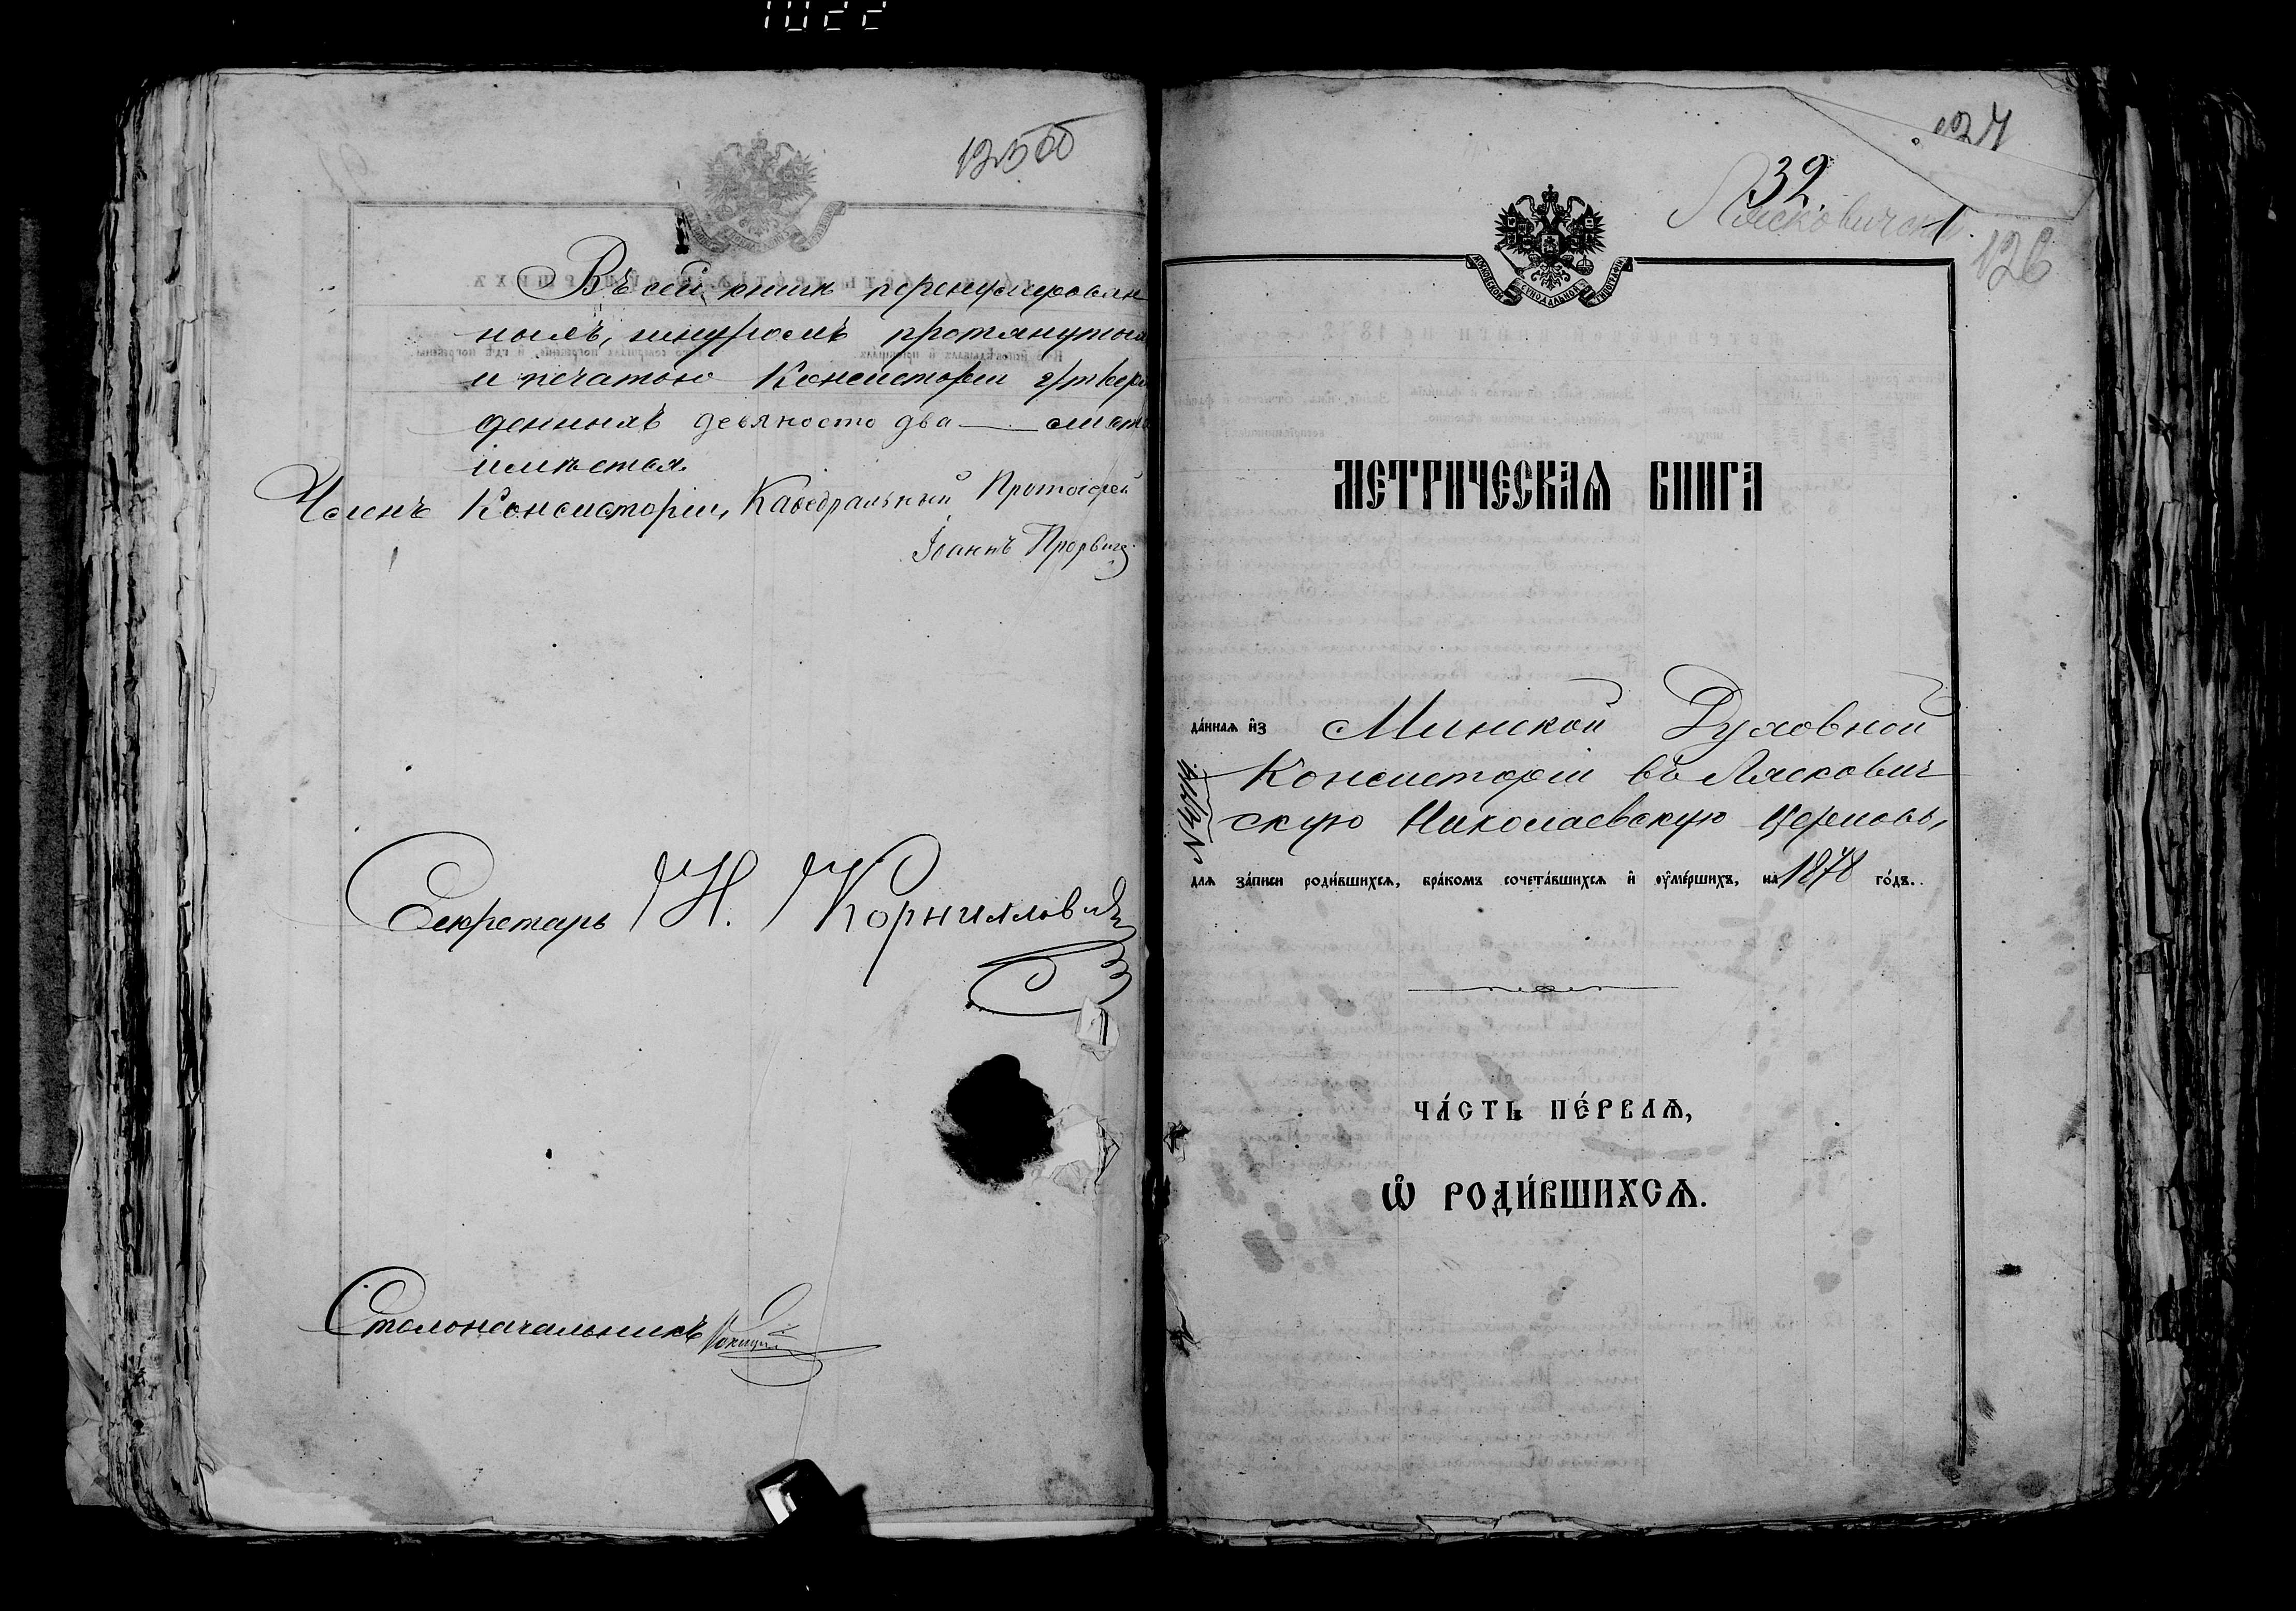 1022
125об
Въ сей книгѣ перенумерован
ныхъ, шнуромъ протянутыхъ
и печатью Консисторіи утверж
денныхъ девяносто два листа
имѣется.
Членъ Консисторіи, Каѳедральный Протоіерей
Іоаннъ
Секретарь Н. Корниловичъ
Столоначальникъ
32.
126
МОСКОВСКОЙ СѶНОДАЛЬНОЙ ТИПОГРАФІИ
МЕТРИЧЕСКАѦ КНИГА
да́ннаѧ и҆з Минской Духовной
Консисторіи въ Ляскович
скую Николаевскую Церковь,
длѧ за́писи роди́вшихсѧ, бра́комъ сочета́вшихсѧ и҆ оу҆ме́ршихъ, на 1878 го́дъ.
ЧА́СТЬ ПЕ́РВАѦ,
Ѡ҆ РОДИ́ВШИХСѦ.